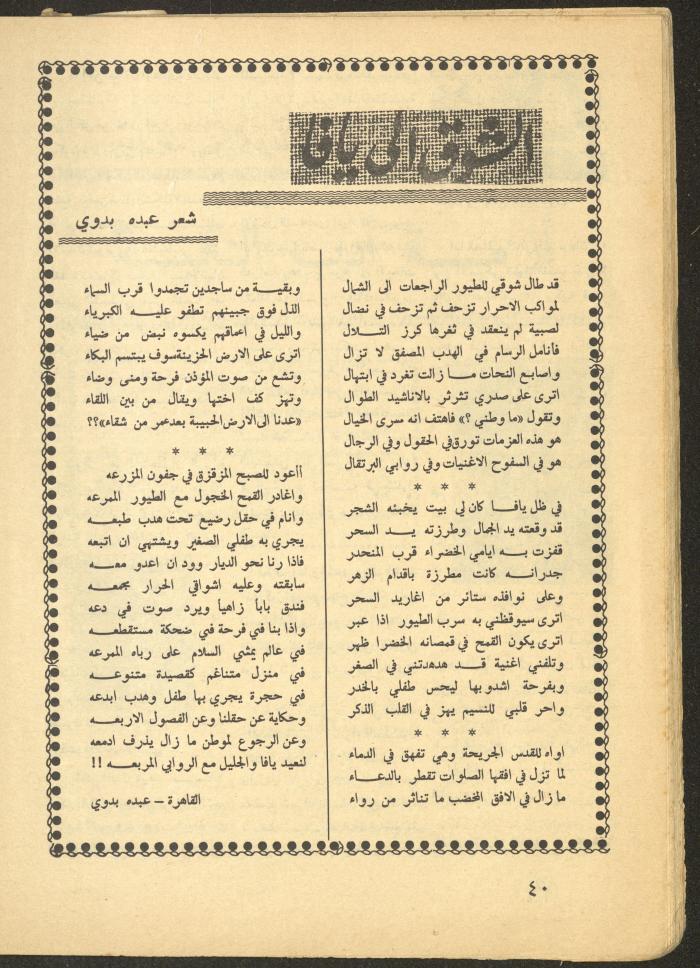 الشوق الى يافا
شعر عبده بدوي
قد طال شوقي للطيور الراجعات الى الشمال
لمواكب الاحرار تزحف ثم تزحف في نضال
لصبية لم ينعقد في ثغرها كرز التــلال
فأنامل الرسام في الهدب المصفق لا تزال
واصابع النحات مــا زالت تغرد في ابتهال
اترى على صدري تثرثر بالاناشيد الطوال
وتقول «ما وطني ؟» فاهتف انه سرى الخيال
هو هذه العزمات تورق في الحقول وفي الرجال
هو في السفوح الاغنيات وفي روابي البرتقال
* * *
في ظل يافــا كان لي بيت يخبئه الشجر
قد وقعته يد الجمال وطرزته يــد السحر
قفزت بــه ايامي الخضراء قرب المنحدر
جدرانــه كانت مطرزة باقدام الزهر
وعلى نوافذه ستائر من اغاريد السحر
اترى سيوقظني به سرب الطيور اذا عبر
اترى يكون القمح في قمصانه الخضرا ظهر
وتلفني اغنية قــد هدهدتني في الصغر
وبفرحة اشدو بها ليحس طفلي بالخدر
واحر قلبي للنسيم يهز في القلب الذكر
* * *
اواه للقدس الجريحة وهي تفهق في الدماء
لما تزل في افقها الصلوات تقطر بالدعــاء
ما زال في الافق المخضب ما تناثر من رواء
وبقيــة من ساجدين تجمدوا قرب السماء
الذل فوق جبينهم تطفو عليــه الكبرياء
والليل في اعماقهم يكسوه نبض من ضياء
اترى على الارض الحزينة سوف يبتسم البكاء
وتشع من صوت المؤذن فرحة ومنى وضاء
وتهز كف اختها ويقال من بين اللقاء
«عدنا الى الارض الحبيبة بعد عمر من شقاء»؟؟
* * *
أأعود للصبح المزقزق في جفون المزرعه
واغادر القمح الخجول مع الطيور الممرعه
وانام في حقل رضيع تحت هدب طبعــه
يجري به طفلي الصغير ويشتهي ان اتبعه
فاذا رنا نحو الديار وود ان اعدو معــه
سابقته وعليه اشواقي الحرار مجمعــه
فندق باباً زاهياً ويرد صوت في دعه
واذا بنا في فرحة في ضحكة مستقطعــه
في عالم يمشي السلام على رباه الممرعه
في منزل متناغم كقصيدة متنوعــه
في حجرة يجري بها طفل وهدب ابدعه
وحكاية عن حقلنا وعن الفصول الاربعــه
وعن الرجوع لموطن ما زال يذرف ادمعه
لنعيد يافا والجليل مع الروابي المربعــه !!
القاهرة – عبده بدوي
٤٠